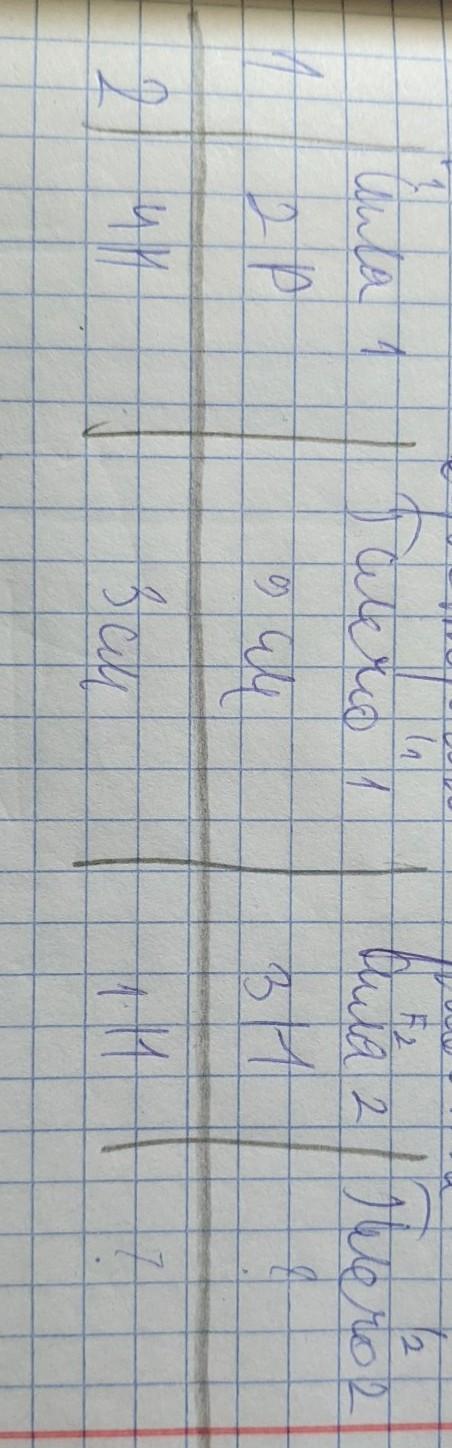 Сила 1 Плечо 1 l1 Сила 2 F2 Плечо 2 l2
1 2 Н 9 см 3 Н ?
2 4 Н 3 см 1 Н ?